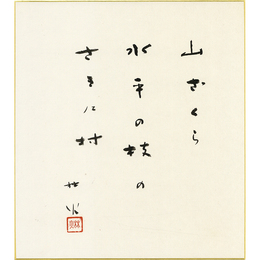 山ざくら
水平の枝の
さきに村